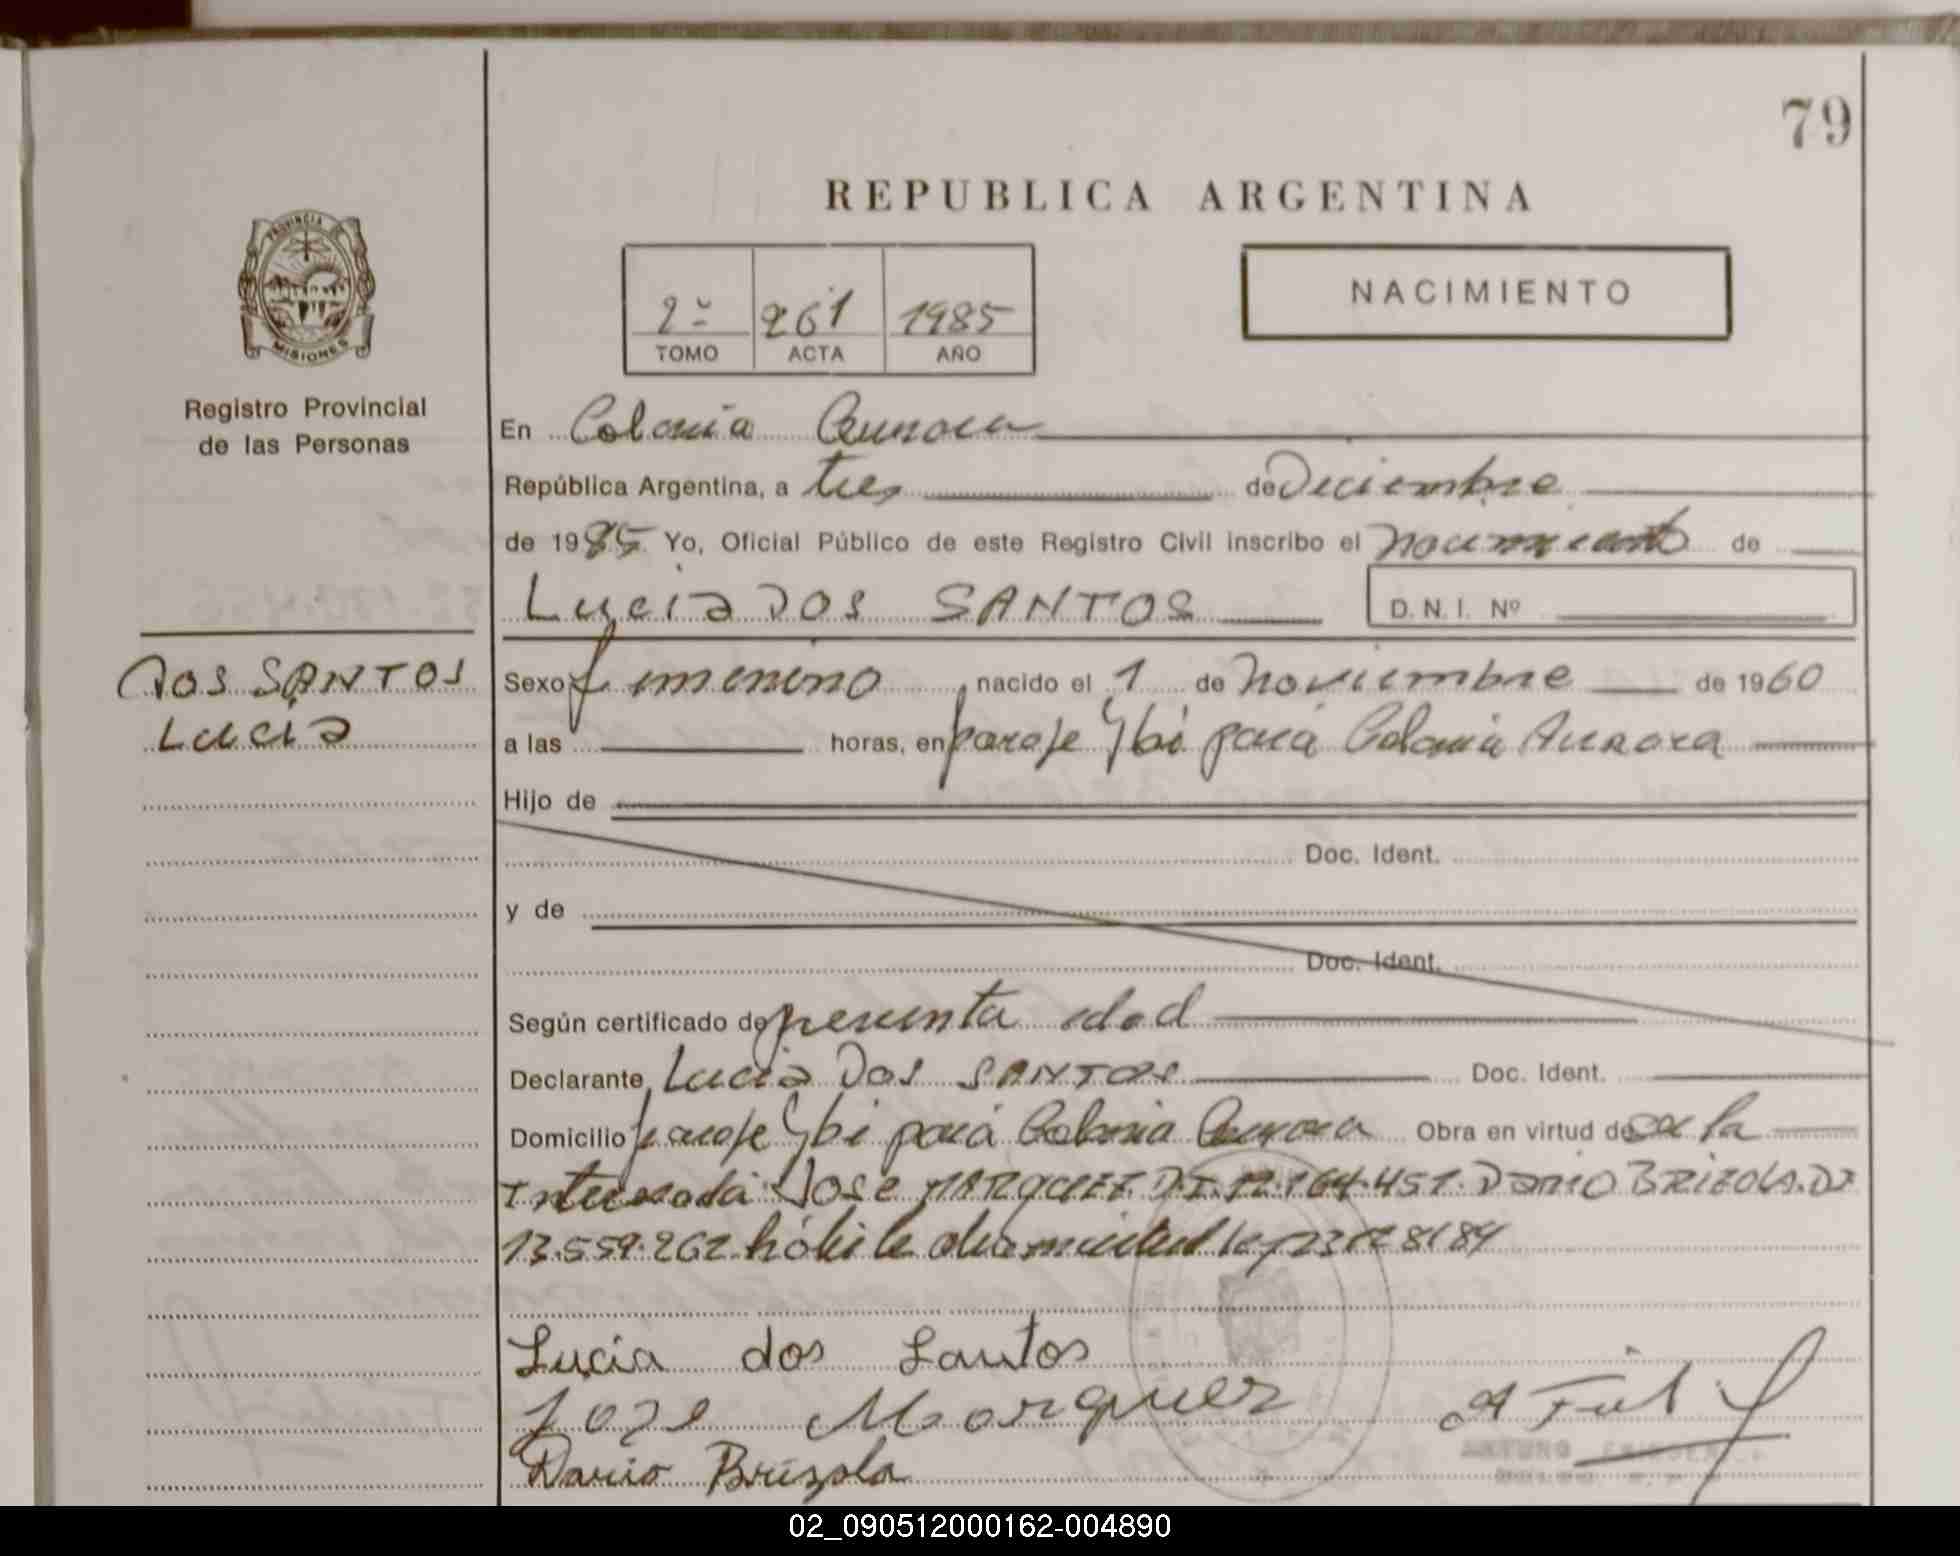 79
REPUBLICA ARGENTINA
PROVINCIA DE
MISIONES
Registro Provincial
de las Personas
2º 261 1985
TOMO ACTA AÑO
NACIMIENTO
En Colonia Aurora
República Argentina, a tres de Diciembre
de 1985 Yo, Oficial Público de este Registro Civil inscribo el nacimiento de
Lucia DOS SANTOS D.N.I. Nº
DOS SANTOS
Lucia
Sexo femenino nacido el 1 de noviembre de 1960
a las horas, en paraje Ybi pará Colonia Aurora
Hijo de
Doc. Ident.
y de
Doc. Ident.
Según certificado de presunta edad
Declarante Lucia Dos SANTOS Doc. Ident.
Domicilio paraje Ybi pará Colonia Aurora Obra en virtud de la
Interesada Jose MARQUEZ D.I. 12.164.451. Dario BRIZOLA. DI
13.559.262 ley 23128/84
Lucia dos Santos
Joze Marquez
Dario Brizola
ARTURO
02_090512000162-004890